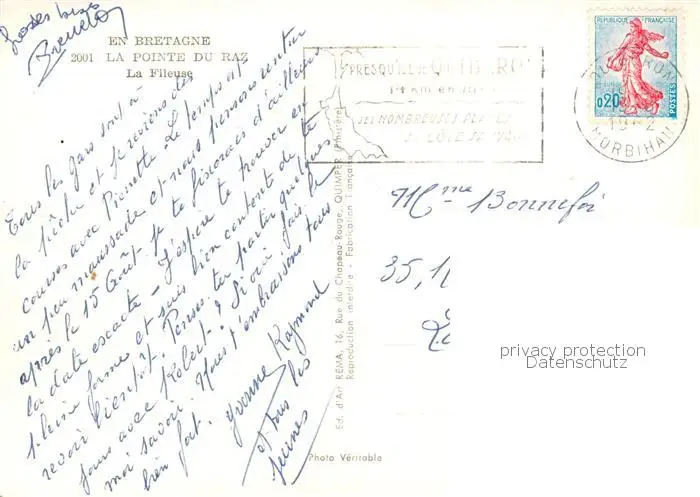 Grosses bises
EN BRETAGNE
2001 LA POINTE DU RAZ
La Fileuse
Tous les gars sont à
la pêche et je reviens des
courses avec Pierrette. Le temps est
un peu maussade et nous pensons rentrer
après le 15 Août. Je te fixerais d'ailleurs
la date exacte - J'espère te trouver en
pleine forme et suis bien contente de te
revoir bientôt. Penses-tu partir quelques
jours avec Robert ? Si oui, fais le
moi savoir. Nous t'embrassons tous
bien fort. Yvonne Raymond
et tous les
jeunes
PRESQU'ILE DE QUIBERON
14 KM EN MER
SES NOMBREUSES PLAGES
SA CÔTE SAUVAGE
REPUBLIQUE FRANÇAISE
0,20
POSTES
QUIBERON
MORBIHAN
Mme Bonnefoi
35,
Ed. d'Art REMA, 16, Rue du Chapeau-Rouge, QUIMPER (Finistère)
Reproduction interdite - Fabrication Française
Photo Véritable
privacy protection
Datenschutz